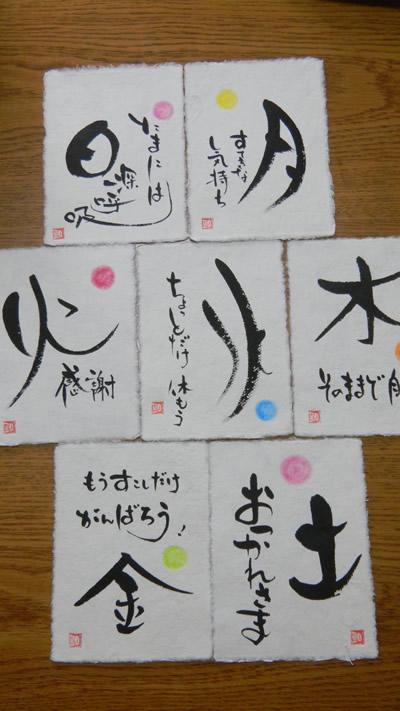 日
たまには
深呼
吸
月
すてきな
し気持ち
火
感謝
水
ちょっとだけ休もう
木
そのままで
金
もうすこしだけ
がんばろう!
土
おつかれさま